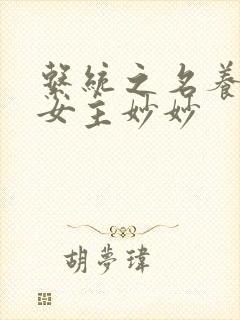 繫統之名養
女主妙妙
胡夢瑋